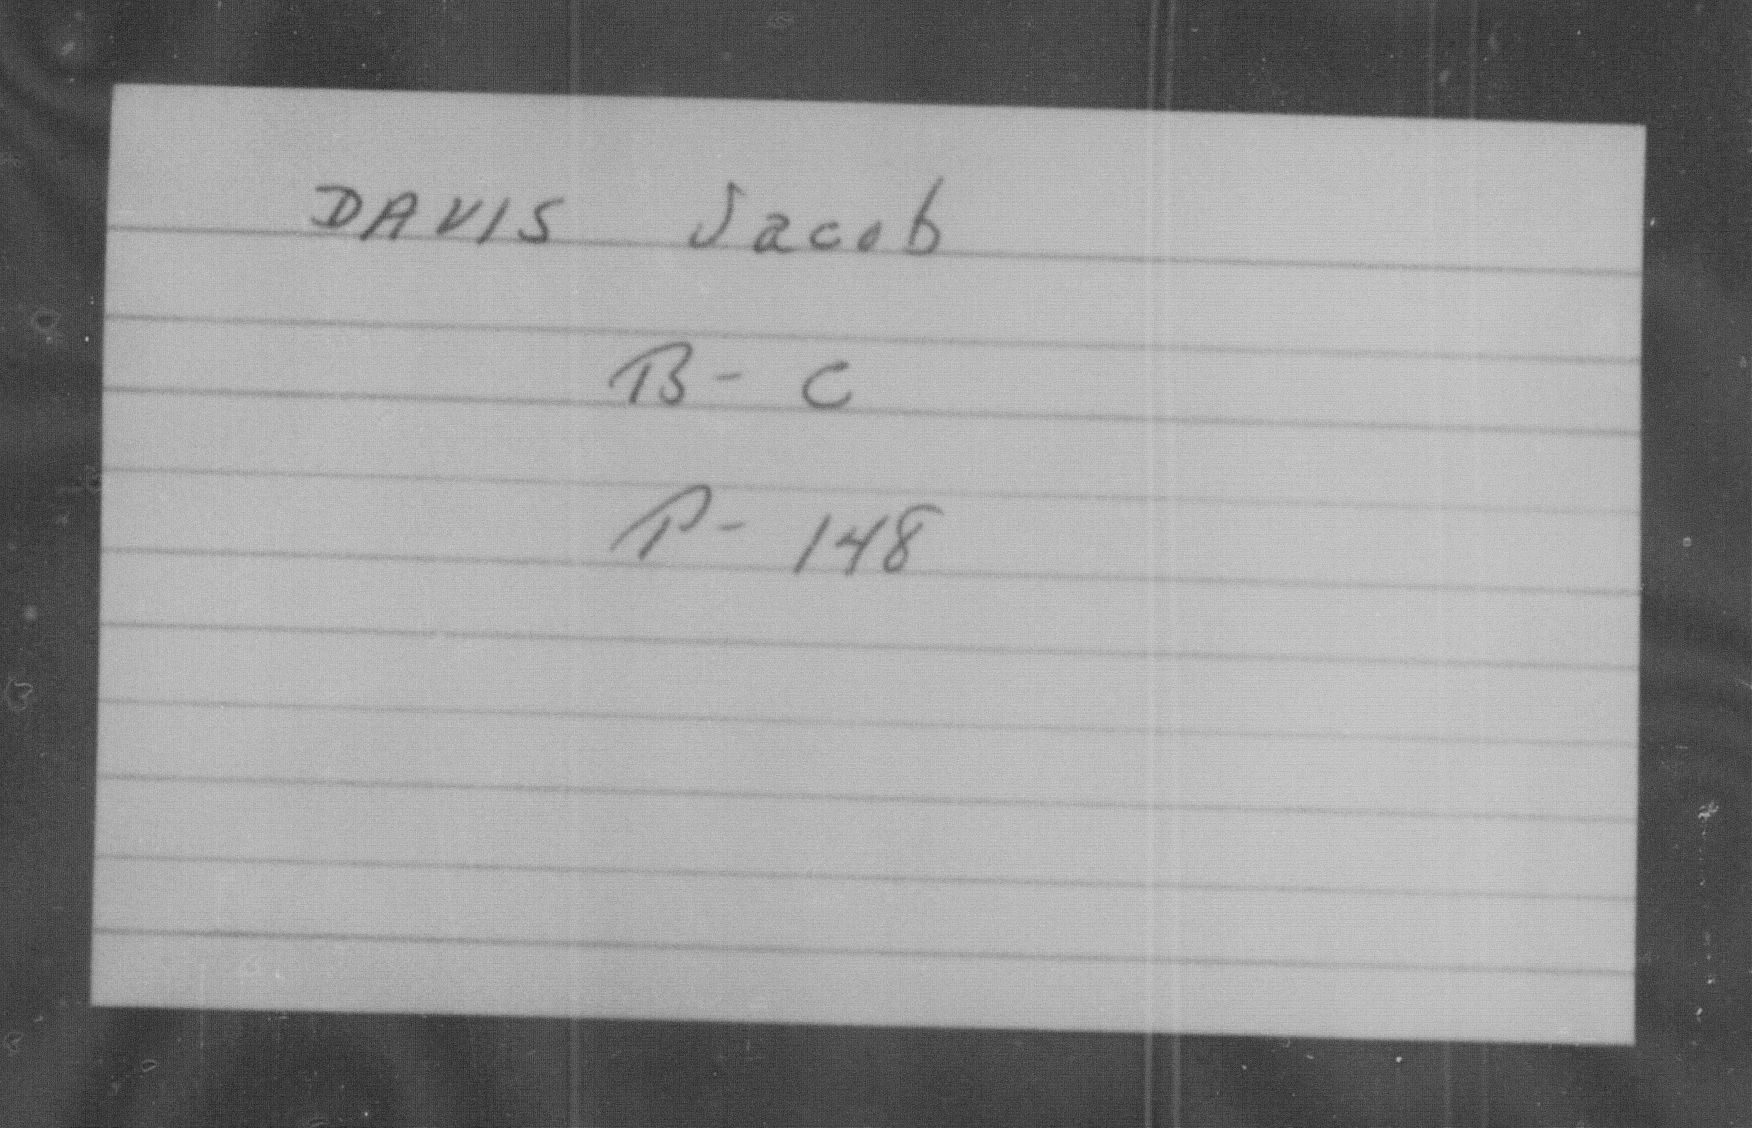 DAVIS Jacob
B - C
P - 148